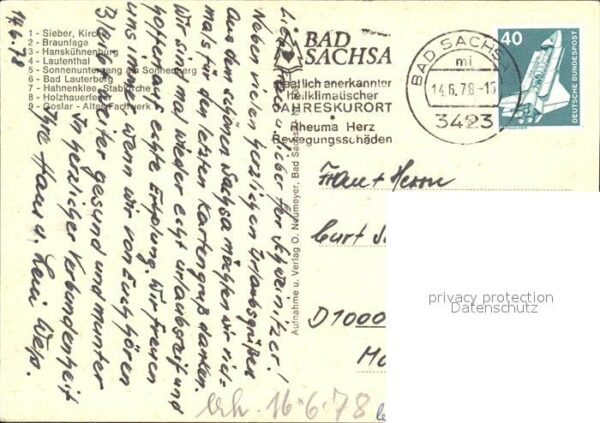 1 - Sieber, Kirche
2 - Braunlage
3 - Hanskühnenburg
4 - Lautenthal
5 - Sonnenuntergang am Sonnenberg
6 - Bad Lauterberg
7 - Hahnenklee, Stabkirche
8 - Holzhauerfest
9 - Goslar - Altes Fachwerk
14.6.78
Neben vielen herzlichen Urlaubsgrüßen
aus dem schönen Sachsa möchten wir viel-
mals für den letzten Kartengruß danken.
Wir sind mal wieder echt urlaubsreif und
hoffen auf echte Erholung. Wir freuen
uns immer wenn wir von Euch hören
Bleibt weiter gesund und munter
In herzlicher Verbundenheit
Ihre Hans u.
Aufnahme u. Verlag O. Neumeyer, Bad Sachsa
BAD
SACHSA
staatlich anerkannter
heilklimatischer
JAHRESKURORT
Rheuma Herz
Bewegungsschäden
BAD SACHSA
ml
14.6.78-15
3423
40
DEUTSCHE BUNDESPOST
Frau + Herrn
Curt
D1000
erh. 16.6.78
privacy protection
Datenschutz